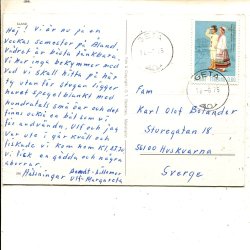 Hej! Vi är nu på en
veckas semester på Åland.
Vädret är bästa tänkbara.
Vi har inga bekymmer med
vad vi skall hitta på här
ty utan för stugan ligger
havet spegelblankt med
hundratals små öar och det
finns också en båt som vi
får använda. Ulf och jag
var ute i går kväll och
fiskade vi kom hem Kl.
vi fick en gädda och några
aborrar.
Hälsningar
Ulf-Margareta
GETA
GETA
Fam
Karl Olof Bolander
Sturegatan 18
56100 Huskvarna
Sverge